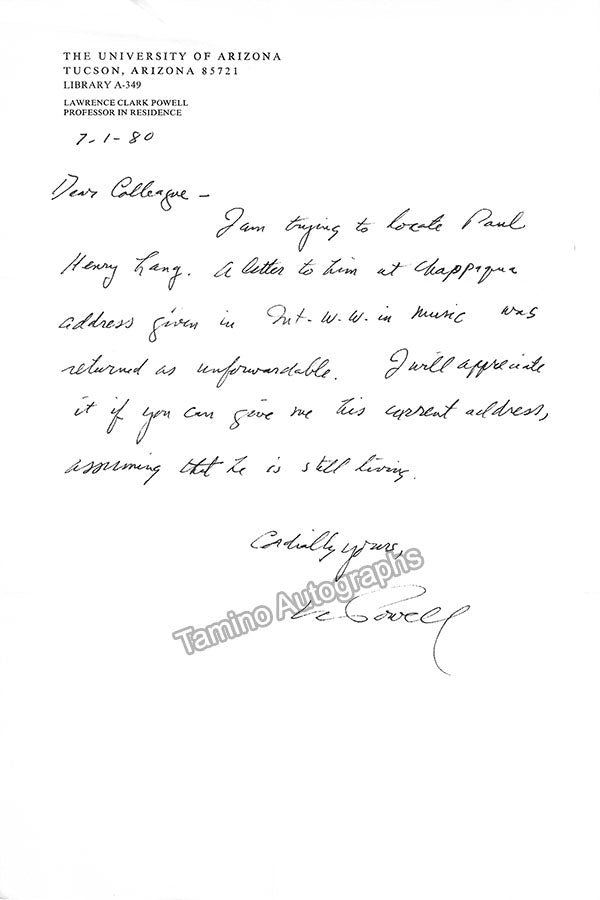 THE UNIVERSITY OF ARIZONA
TUCSON, ARIZONA 85721
LIBRARY A-349
LAWRENCE CLARK POWELL
PROFESSOR IN RESIDENCE
7-1-80
Dear Colleague —
I am trying to locate Paul
Henry Lang. A letter to him at Chappaqua
address given in Int. W. W. in Music was
returned as unforwardable. I will appreciate
it if you can give me his current address,
assuming that he is still living.
Cordially yours,
Tamino Autographs
LC Powell